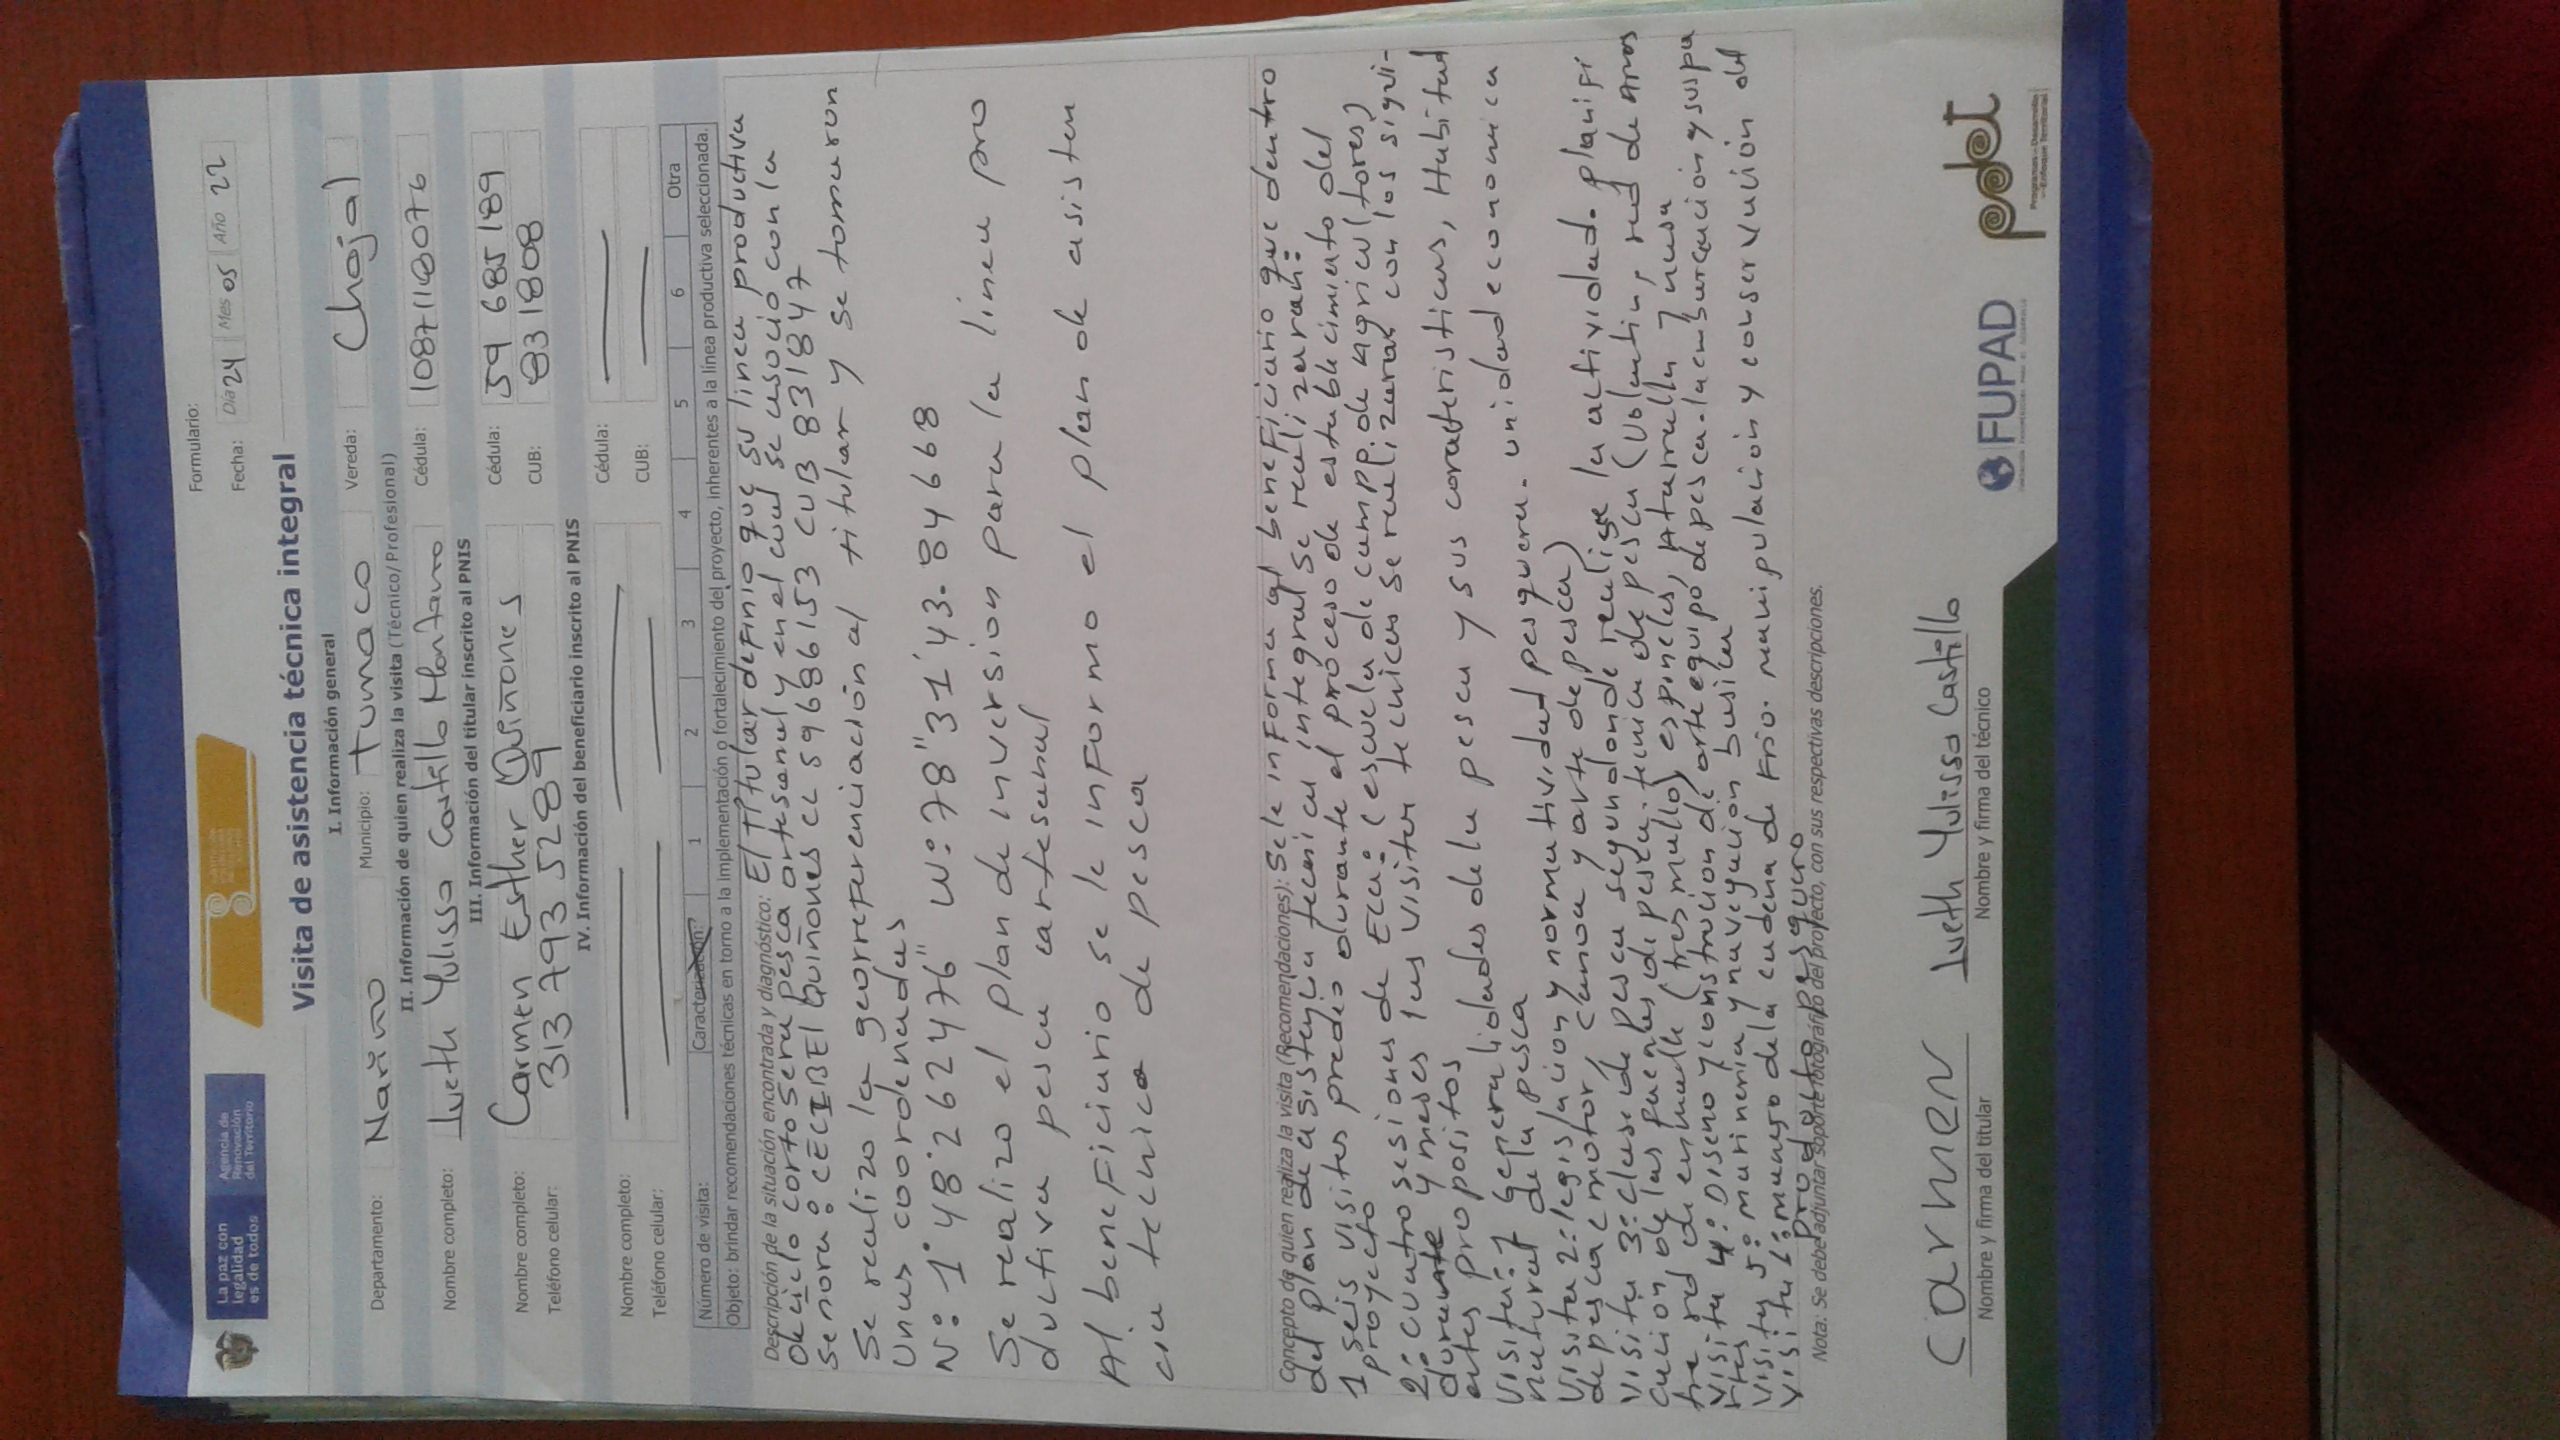 La paz con
legalidad
es de todos
Agencia de
Renovación
del Territorio
Formulario:
Fecha: Día 24 Mes 05 Año 22
Visita de asistencia técnica integral
I. Información general
Departamento: Nariño Municipio: Tumaco Vereda: Chajal
II. Información de quien realiza la visita (Técnico/ Profesional)
Nombre completo: Iveth Yulissa Castillo Montaño Cédula: 1087118076
III. Información del titular inscrito al PNIS
Nombre completo: Carmen Esther Quiñones Cédula: 59 685 189
Teléfono celular: 313 793 5289 CUB: 831808
IV. Información del beneficiario inscrito al PNIS
Nombre completo: Cédula:
Teléfono celular: CUB:
Número de visita: Caracterización? 1 2 3 4 5 6 Otra
Objeto: brindar recomendaciones técnicas en torno a la implementación o fortalecimiento del proyecto, inherentes a la línea productiva seleccionada.
Descripción de la situación encontrada y diagnóstico: El Titular definio que su linea productiva
de ciclo corto sera pesca artesanal y en el cual se asocio con la
señora: CECIBEL Quiñones CC 59686153 CUB 831847
Se realizo la georreferenciación al titular y se tomaron
Unas coordenadas
N: 1° 48' 2624 76" W: 78" 31' 43. 84 668
Se realizo el plan de inversion para la linea pro
ductiva pesca artesanal
Al beneficiario se le informo el plan de asisten
cia tecnica de pesca
Concepto de quien realiza la visita (Recomendaciones): Se le informa al beneficiario que dentro
del plan de asistencia tecnica integral se realizaran:
1 seis visitas predio durante el proceso de establecimiento del
proyecto
2: cuatro sesiones de Eca: (escuela de campp de agricultores)
durante y meses las visitas tecnicas se realizaran con los sigui-
entes propositos
Visita: 1 generalidades de la pesca y sus carateristicas, Habitad
natural de la pesca unidad economica
Visita 2: legislacion y normatividad pesquera.
de pesca (motor, canoa y arte de pesca)
Visita 3: clase de pesca segun donde realise la actividad. planifi
cacion de las faenas de pesca: tecnica de pesca (Volantin, red de aros
tre red de enmalle (tres mallo) espineles, Atarralla 7 nasa
Visita 4: Diseño y construcion de arte equipo de pesca. la embarcacion y sus pa
rtes
Visita 5: marineria y navegacion basica
Visita 6: manejo de la cadena de frio. manipulacion y conservacion del
producto pesquero
Nota: Se debe adjuntar soporte fotográfico del proyecto, con sus respectivas descripciones.
Carmen
Nombre y firma del titular
Iveth Yulissa Castillo
Nombre y firma del técnico
FUPAD
pdet
Programas de Desarrollo
con Enfoque Territorial